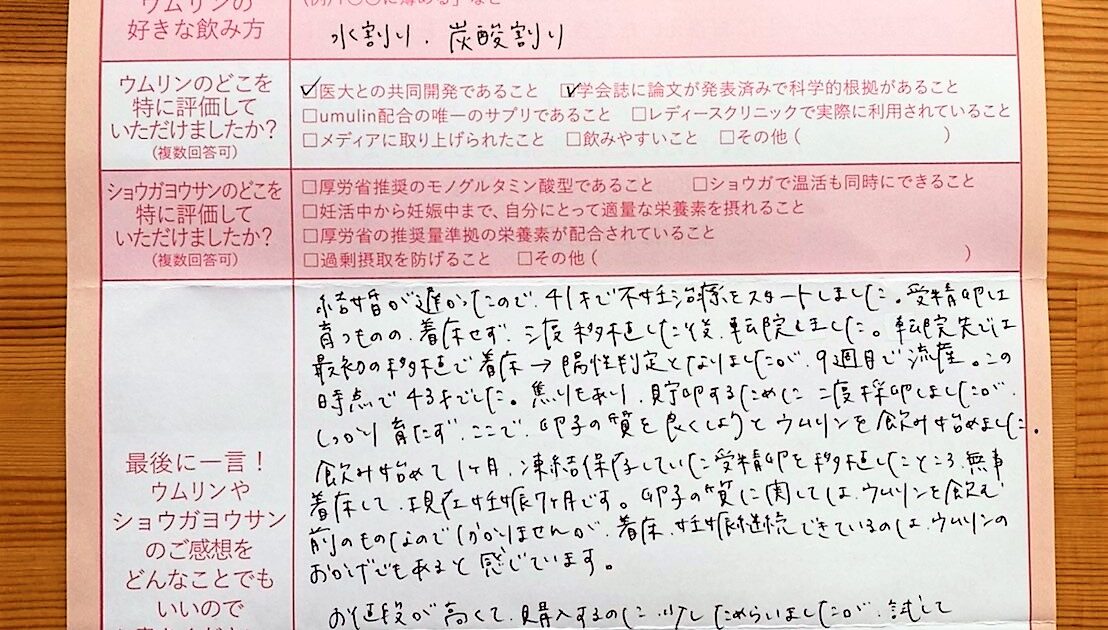 ウムリンの
好きな飲み方
水割り、炭酸割り
ウムリンのどこを
特に評価して
いただけましたか?
(複数回答可)
□医大との共同開発であること □学会誌に論文が発表済みで科学的根拠があること
□umulin配合の唯一のサプリであること □レディースクリニックで実際に利用されていること
□メディアに取り上げられたこと □飲みやすいこと □その他( )
ショウガヨウサンのどこを
特に評価して
いただけましたか?
(複数回答可)
□厚労省推奨のモノグルタミン酸型であること □ショウガで温活も同時にできること
□妊活中から妊娠中まで、自分にとって適量な栄養素を摂れること
□厚労省の推奨量準拠の栄養素が配合されていること
□過剰摂取を防げること □その他( )
最後に一言!
ウムリンや
ショウガヨウサン
のご感想を
どんなことでも
いいので
結婚が遅かったので、41才で不妊治療をスタートしました。受精卵は
育つものの、着床せず、二度移植した後、転院しました。転院先では
最初の移植で着床→陽性判定となりましたが、9週目で流産。この
時点で43才でした。焦りもあり、貯卵するために二度採卵しましたが、
しっかり育たず、ここで、卵子の質を良くしようとウムリンを飲み始めました。
飲み始めて1ヶ月、凍結保存していた受精卵を移植したところ、無事
着床して、現在妊娠7ヶ月です。卵子の質に関しては、ウムリンを飲む
前のものなので分かりませんが、着床、妊娠継続できているのは、ウムリンの
おかげでもあると感じています。
お値段が高くて、購入するのに少しためらいましたが、試して